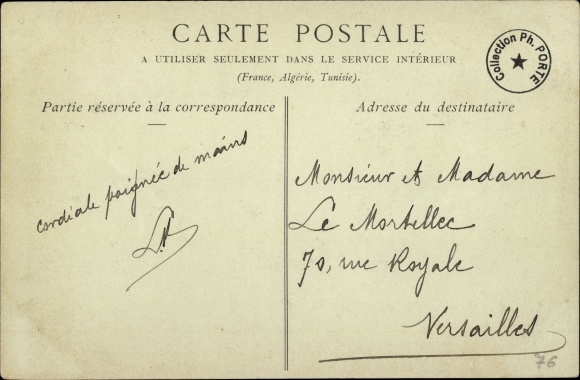 CARTE POSTALE
A UTILISER SEULEMENT DANS LE SERVICE INTÉRIEUR
(France, Algérie, Tunisie).
Collection Ph. PORTE
Partie réservée à la correspondance
cordiale poignée de mains
Adresse du destinataire
Monsieur et Madame
Le Mortellec
70, rue Royale
Versailles
76